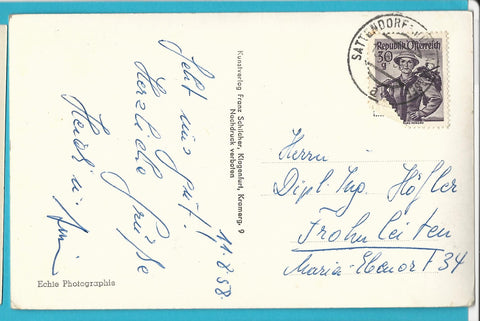 Geht uns gut!
Herzliche Grüße
Heidi u.
11.8.58.
Echte Photographie
Kunstverlag Franz Schilcher, Klagenfurt, Kramerg. 9
Nachdruck verboten
SATTENDORF
Republik Österreich
30
g
Herrn
Dipl. Ing. Höfler
Frohnleiten
Maria-Ebenort 34